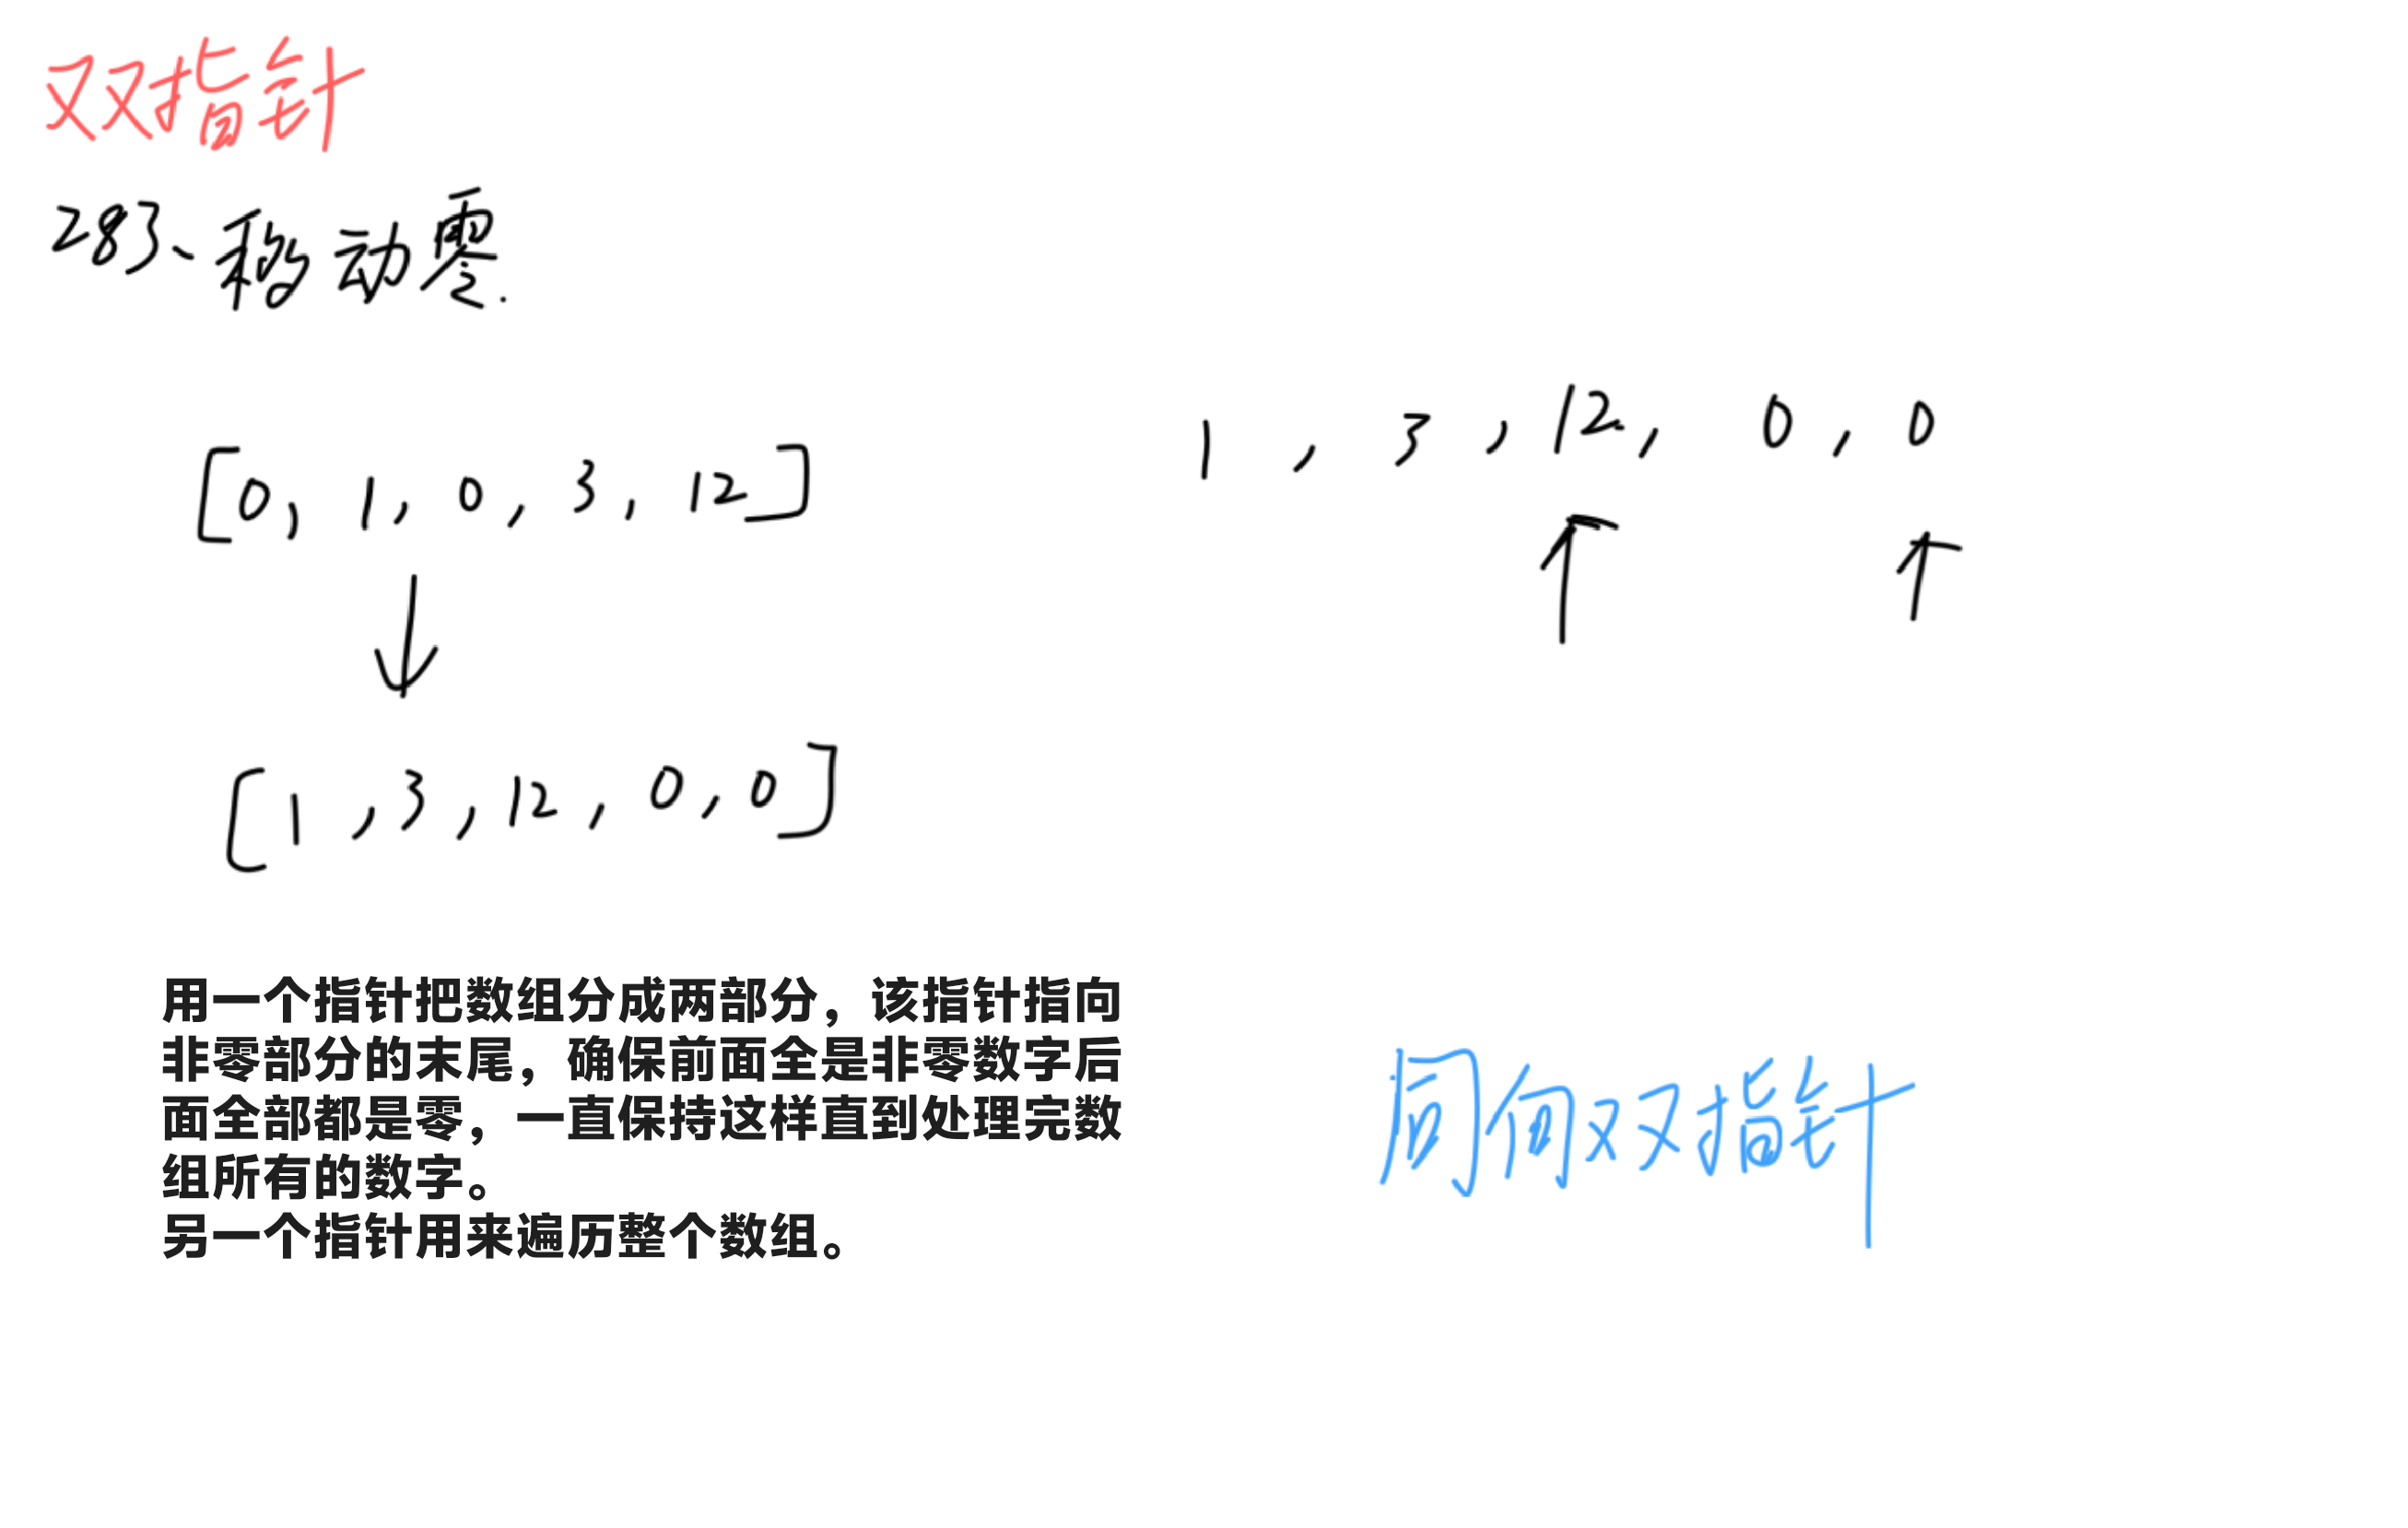 双指针
283、移动零.
[0, 1, 0, 3, 12]
1 , 3 , 12 , 0 , 0
[1 , 3 , 12 , 0 , 0]
用一个指针把数组分成两部分，该指针指向
非零部分的末尾，确保前面全是非零数字后
面全部都是零，一直保持这样直到处理完数
组所有的数字。
另一个指针用来遍历整个数组。
同向双指针